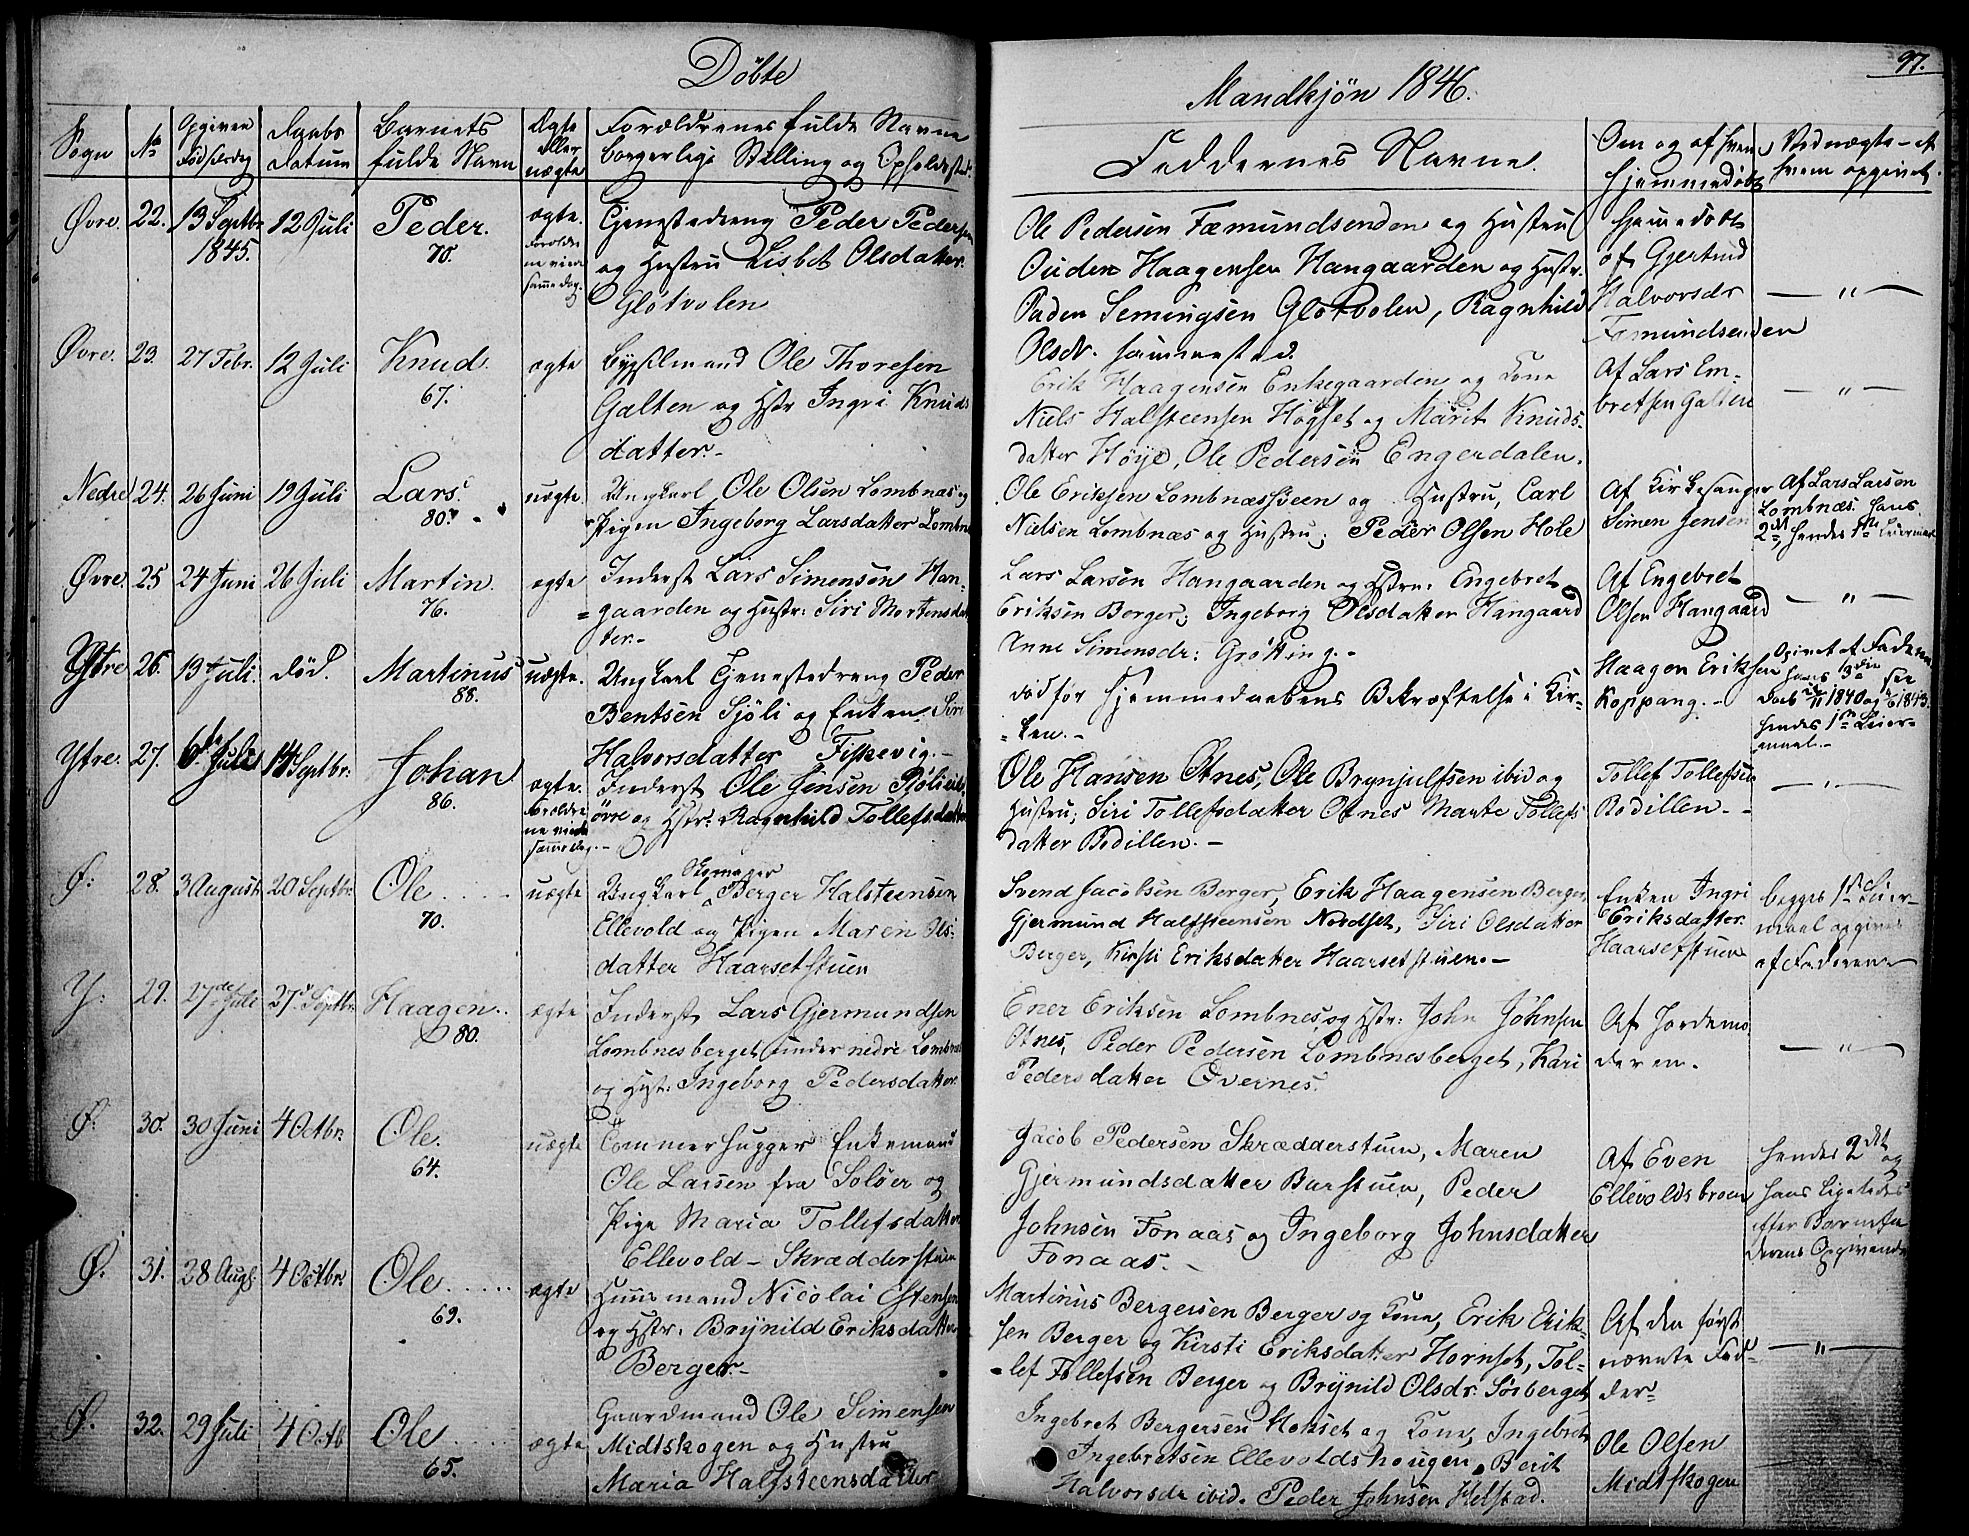 Döbte
Sogn No Opgiven Fødselsdag Daabs Datum Barnets fulde Navn Ægte eller uægte Forældrenes fulde Navne borgerlige Stilling og Opholdssted.
Øvre. 22. 13 Septbr 1845. 12 Juli Peder. 70. ægte. Forældrene viede samme dag. Tjenestedreng Peder Pedersen
og Hustru Lisbet Olsdatter.
Glötvolen
Øvre. 23 27 Febr. 12 Juli Knud. 67. ægte Bygselmand Ole Thoresen
Galten og Hstr Ingri Knuds
datter.-
Nedre 24. 26 Juni 19 Juli Lars. 80. uægte Ungkarl Ole Olsen Lombnæs og
Pigen Ingeborg Larsdatter Lombnæs
Øvre. 25 24 Juni 26 Juli Martin. 76. ægte Inderst Lars Simensen Han-
gaarden og Hustr: Siri Mortensdat
ter.-
Ytre 26. 19 Juli. død. Martinus 88. uægte. Ungkarl Tjenestedreng Peder
Bentsen Sjöli og Enken Siri
Halvorsdatter Fiskevig.-
Ytre. 27. 6te Juli 14 Septbr: Johan 86. ægte. Forældrene viede samme dag.- Inderst Ole Jensen Sjöli
øvre og Hstr: Ragnhild Tollefsdatter
Ø: 28. 3 August 20 Septbr: Ole 70. uægte Ungkarl Skomager Berger Halsteensen
Ellevold og Pigen Maren Ols:
datter Haarsetstuen
Y: 29. 27de Juli 27 Septbr: Haagen.. 80. ægte Inderst Lars Gjermundsen
Lombnesberget under nedre Lombnes
og Hst: Ingeborg Pedersdatter
Ø: 30. 30 Juni 4 Octbr: Ole. 64. uægte Tömmerhugger Enkemand
Ole Larsen fra Solöer og
Pige Maria Tollefsdatter
Ellevold - Skrædderstuen
Ø: 31. 28 Augs. 4 Octbr: Ole 69. ægte Huusmand Nicolai Estensen
og Hstr: Brynild Eriksdatter
Berger.-
Ø. 32. 29 Juli 4 Octb Ole 65. ægte Gaardmand Ole Simensen
Midtskogen og Hustru
Maria Halfsteensdatter
Mandkjön 1846.
97.
Faddernes Navne. Om og af hvem hjemmedøbt Ved uægte - af hvem opgivet.
Ole Pedersen Fæmundsenden og Hustru
Ouden Haagensen Hangaarden og Hustr.
Paden Semingsen Glötvolen, Ragnhild
Olsdr. sammested.
hjemmedøbt
af Gjertrud
Halvorsdr
Fæmundsenden
- " -
Erik Haagensen Enkegaarden og Kone
Niels Halsteensen Högset og Marit Knuds-
datter Höye, Ole Pedersen Engerdalen.
Af Lars Em-
bretsen Galten
- " -
Ole Eriksen Lombnæs og Hustru, Carl
Nielsen Lombnæs og Hustru; Peder Olsen Hole
Af Kirkesanger
Simen Jensen
Af Lars Larsen
Lombnæs. hans
2det, hendes 1ste Leiermaal
Lars Larsen Hangaarden og Hstru: Engebret
Eriksen Berger; Ingeborg Olsdatter Hangaard
Anne Simensdr: Grötting.-
Af Engebret
Olsen Hangaard
- " -
død før Hjemmedaabens Bekræftelse i Kir-
ken.-
Haagen Eriksen
Koppang.-
Opgivet af Faderen
hans 3die see
1840 og 1843.
hendes 1ste Leier-
maal.-
Ole Hansen Otnes, Ole Brynjulfsen ibid og
Hustru; Siri Tollefsdatter Otnes Marte Tollefs
datter Bodillen.-
Tollef Tollefsen
Bodillen.-
- " -
Svend Jacobsen Berger, Erik Haagensen Berger
Gjermund Halfsteensen Nordset, Siri Olsdatter
Berger, Kirsti Eriksdatter Haarsetstuen.-
Enken Ingri
Eriksdatter
Haarsetstuen
begges 1ste Leier-
maal opgivet
af Faderen
Ener Eriksen Lombnes og Hstr: John Johnsen
Otnes, Peder Pedersen Lombnesberget, Kari
Pedersdatter Övernes.
Af Jordemo
deren.
- " -
Jacob Pedersen Skrædderstuen, Maren
Gjermundsdatter Barstuen, Peder
Johnsen Fonaas og Ingeborg Johnsdatter
Fonaas.-
Af Even
Ellevoldsbroen
hendes 2det og
hans ligeledes
efter Barnefa
derens Opgivende
Martinus Bergersen Berger og Kone, Erik Erik-
sen Berger og Kirsti Eriksdatter Hornset, Tol-
lef Tollefsen Berger og Brynild Olsdr. Sörberget
Af den først
nævnte Fad-
der
- " -
Ingebret Bergersen Hokset og Kone, Ingebret
Ingebretsen Ellevoldshougen, Berit
Halvorsdr ibid. Peder Johnsen Helstad.
Ole Olsen
Midtskogen